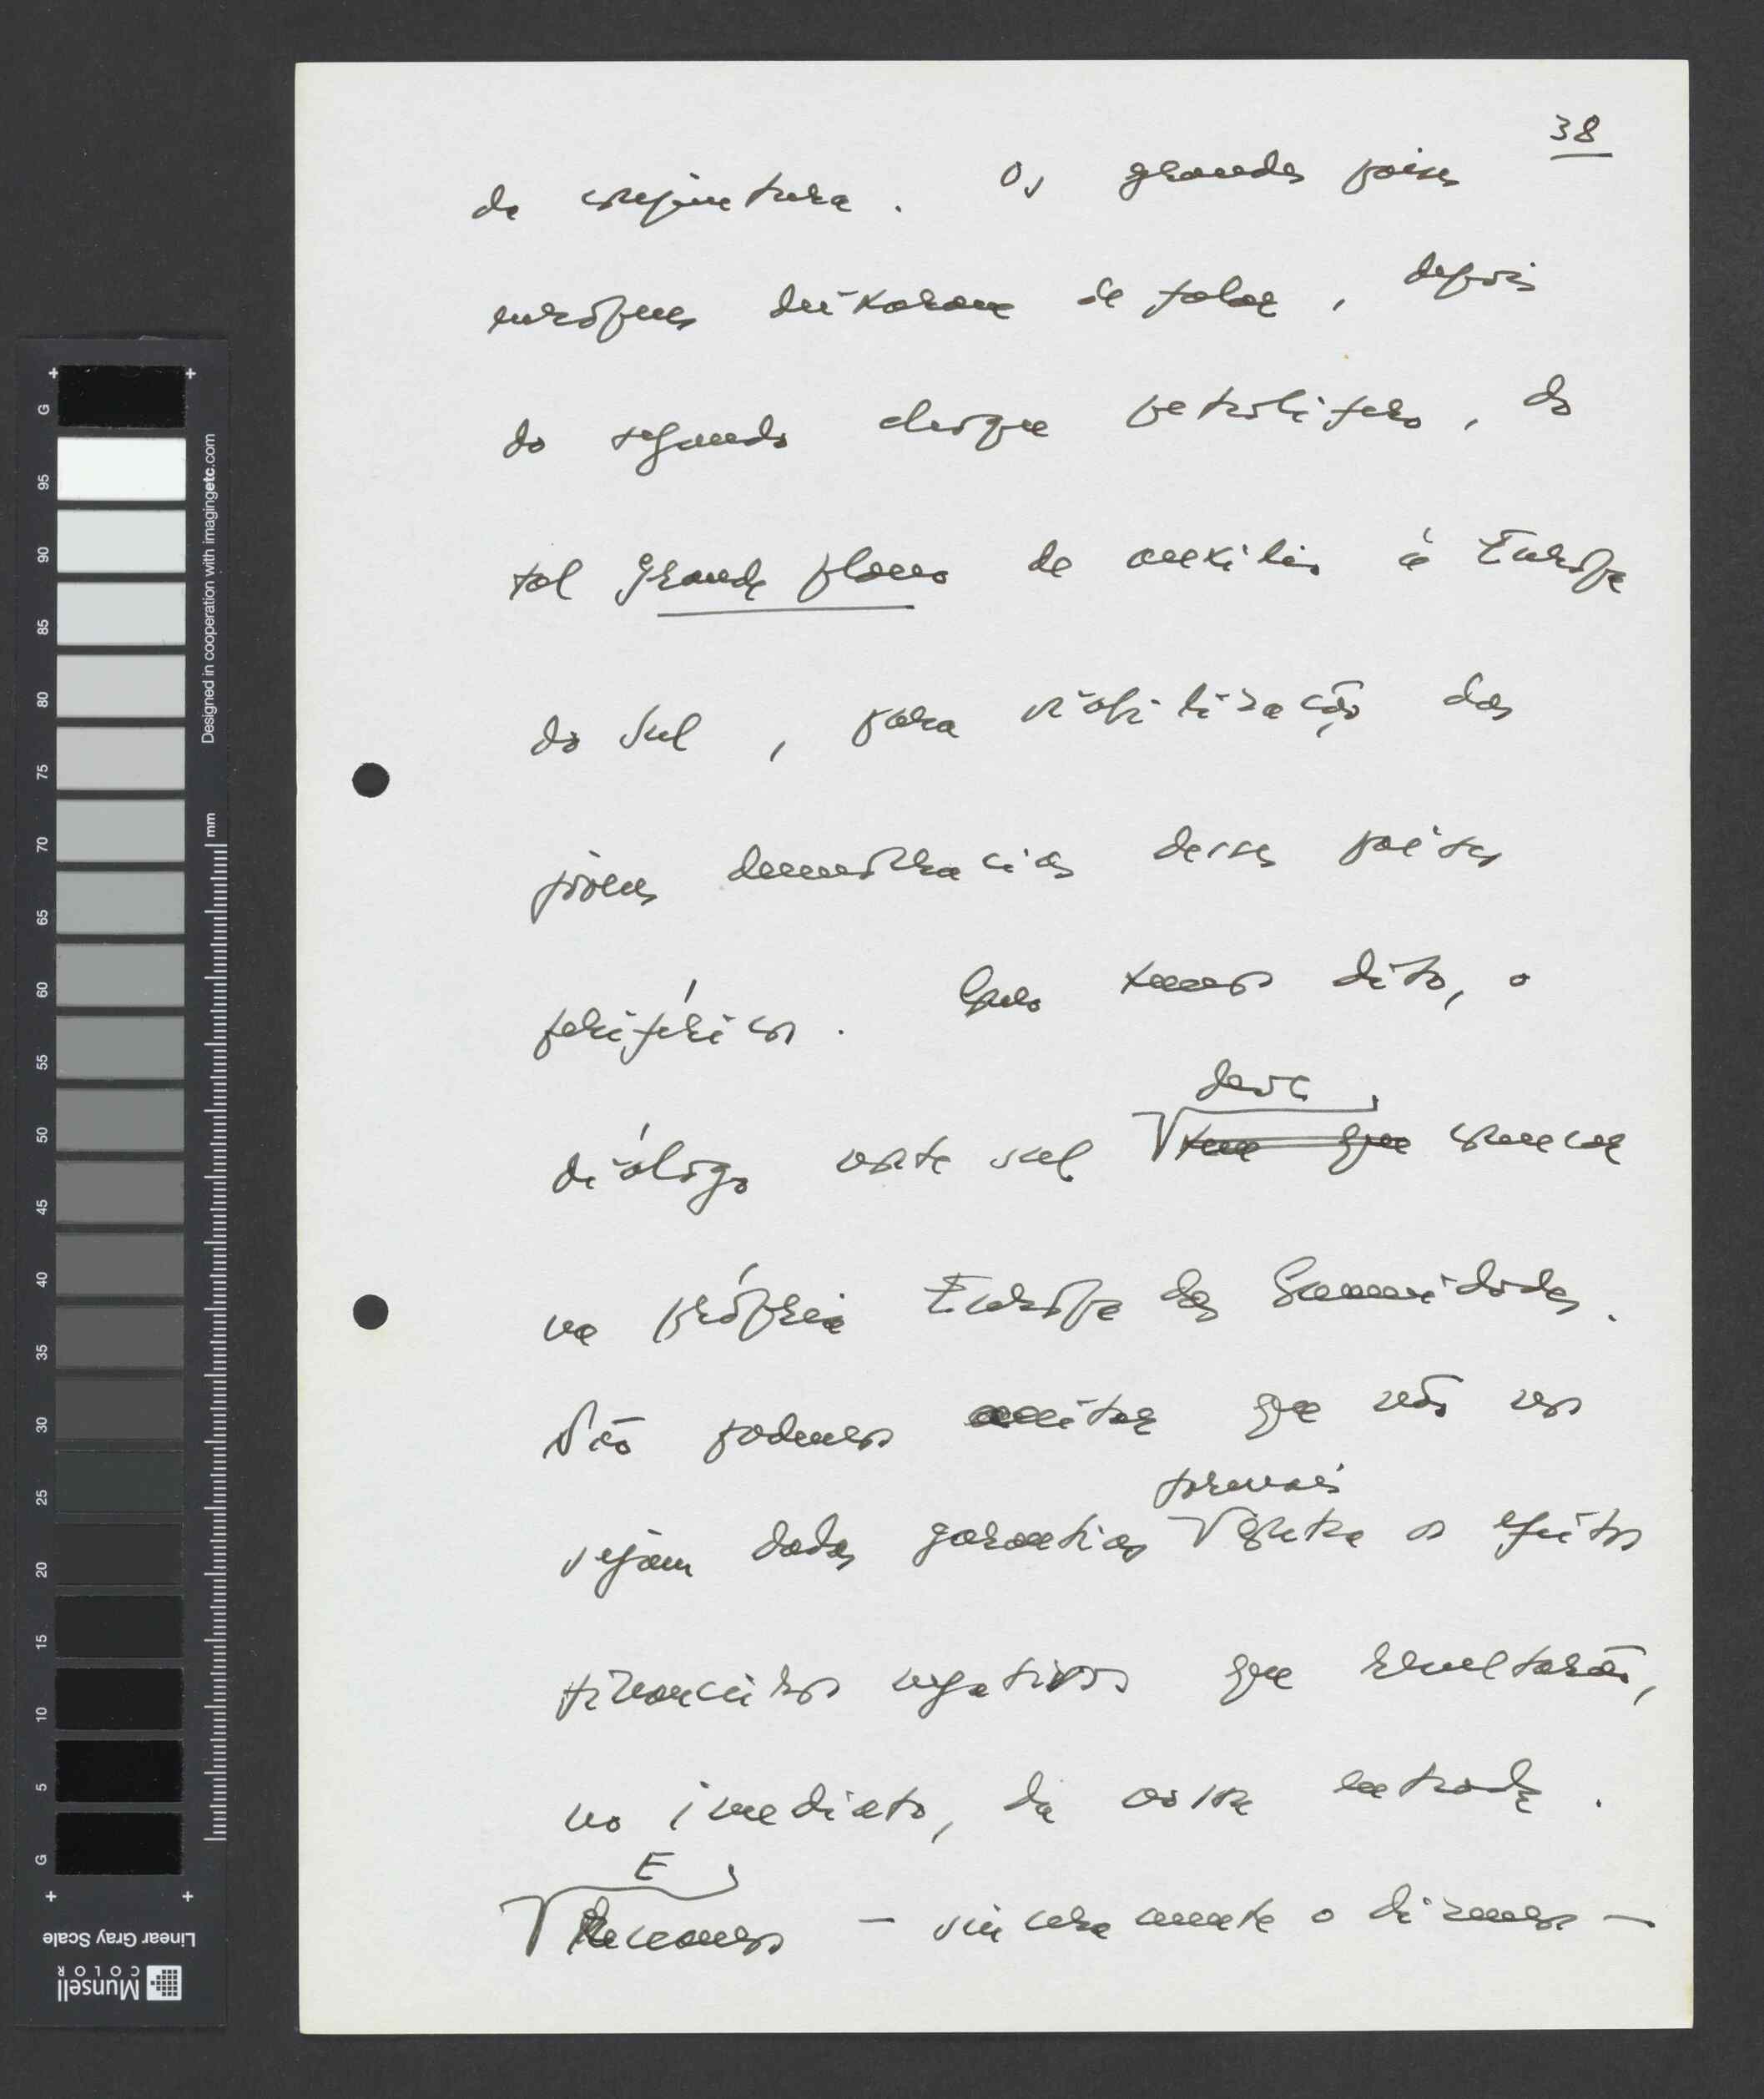 38
da conjuntura. Os grandes países
europeus deixaram de falar, depois
do segundo choque petrolífero, do
tal grande plano de auxílio à Europa
do Sul, para viabilização das
jovens democracias desses países
periféricos. Como temos dito, o
deve
diálogo norte sul tem que começar
na própria Europa das Comunidades.
Não podemos aceitar que não nos
formais
sejam dadas garantias contra os efeitos
financeiros negativos que resultarão,
no imediato, da nossa entrada.
E
Receamos - sinceramente o dizemos -
G 95 90 85 80 75 70 65 60 55 50 45 40 35 30 25 20 15 10 5 G
Designed in cooperation with imagingetc.com
mm
Linear Gray Scale
Munsell
COLOR